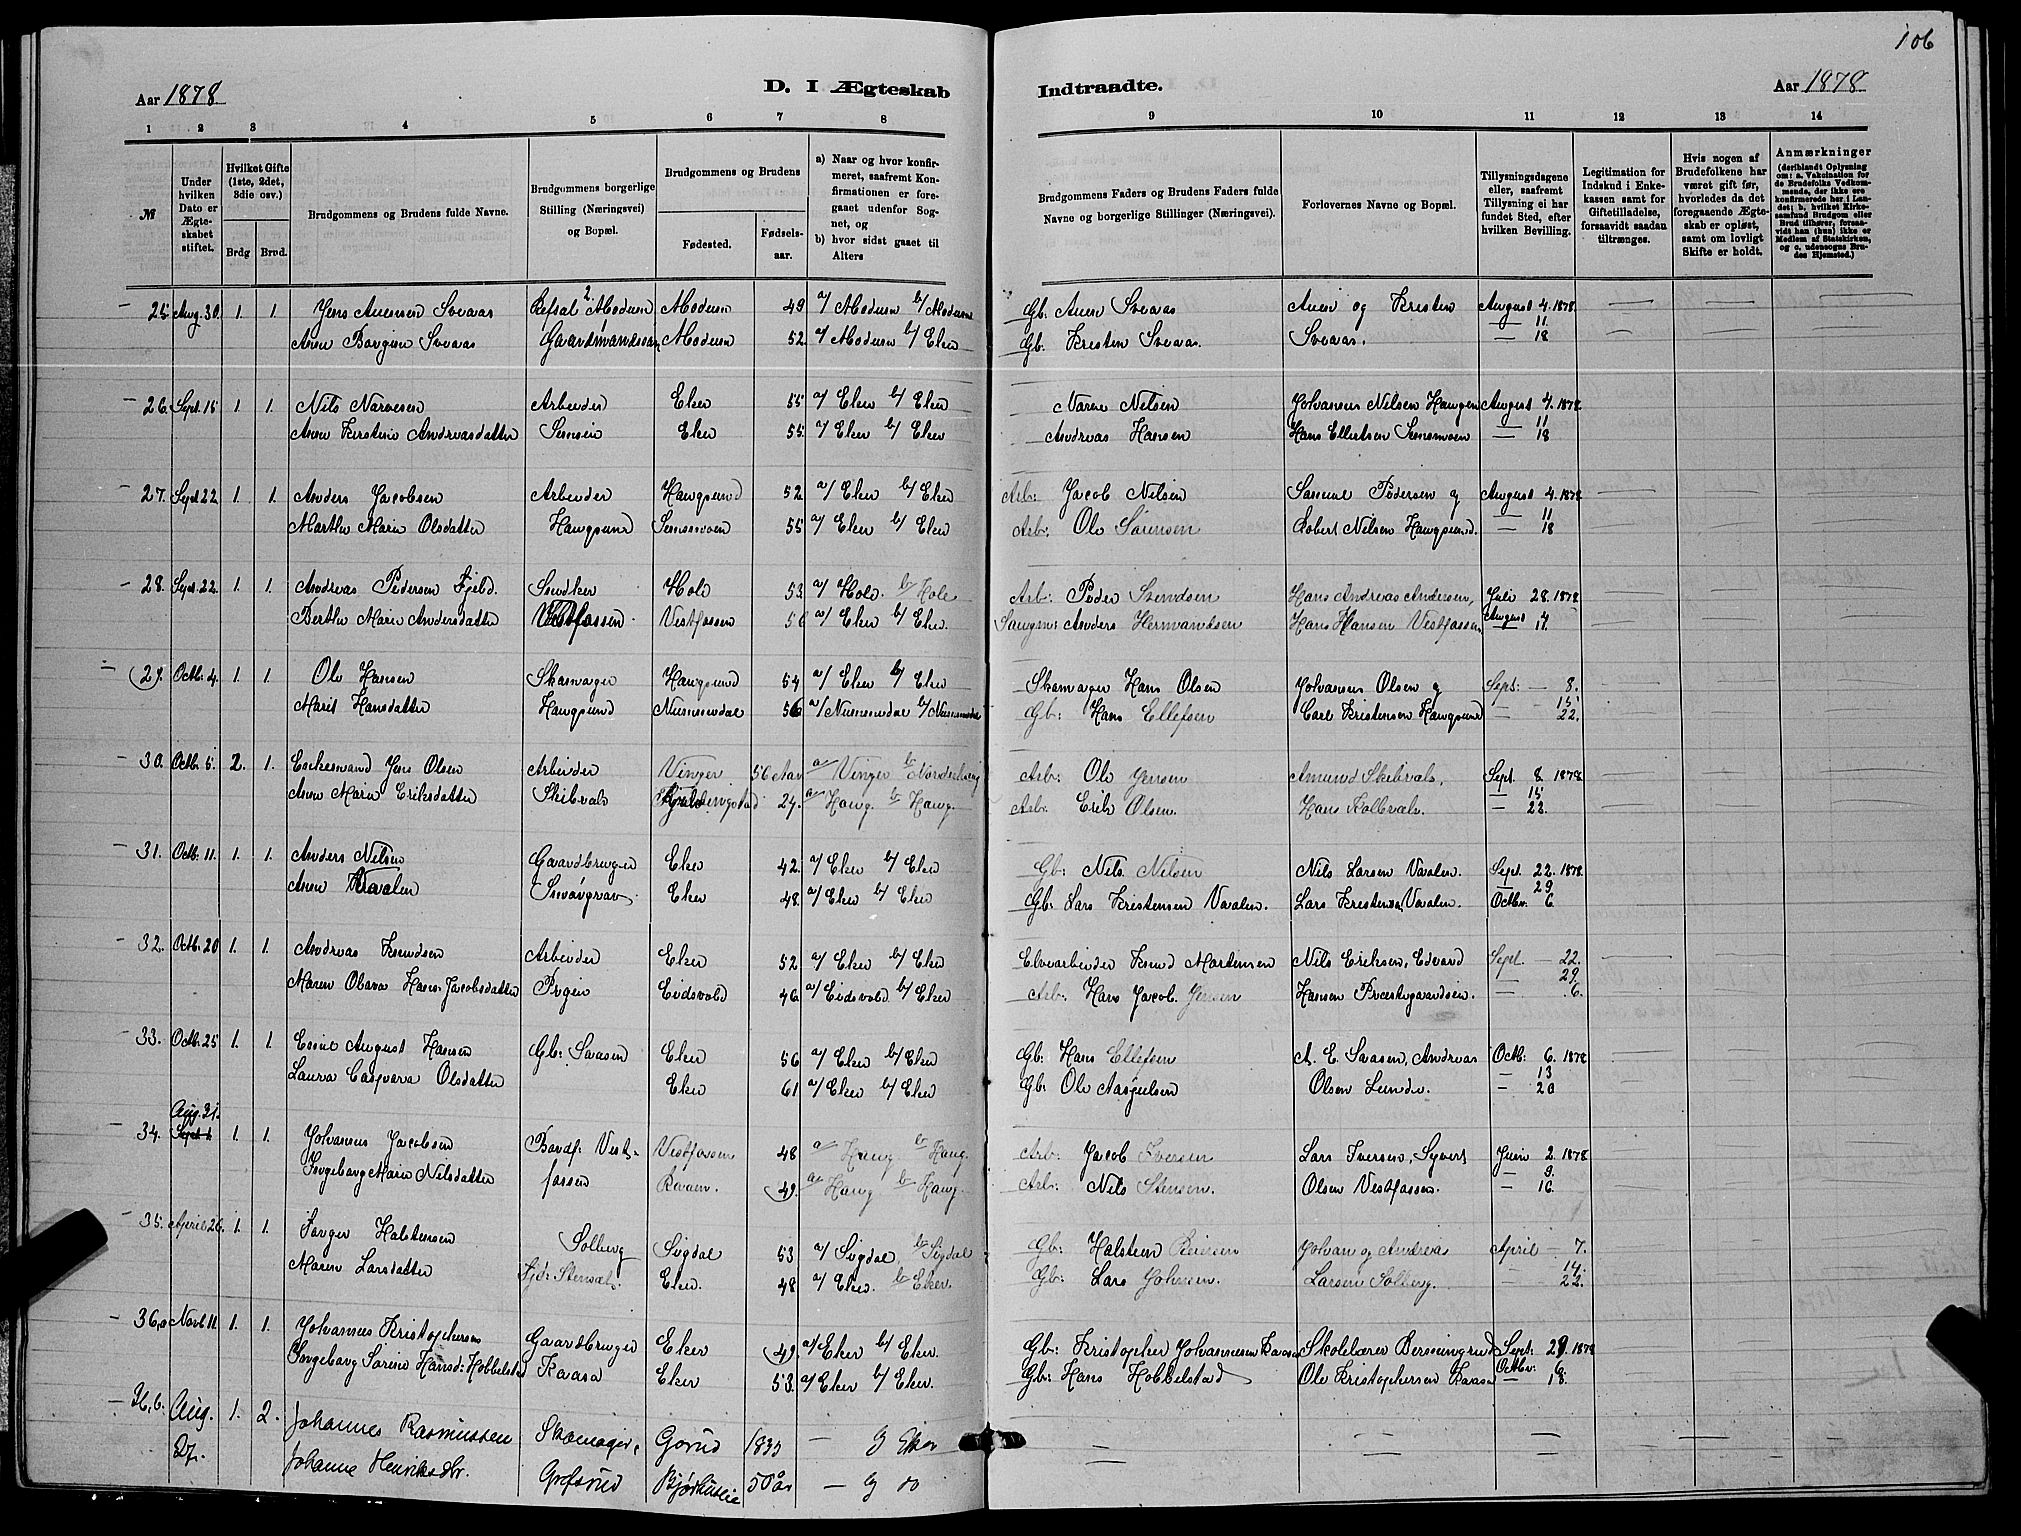 106
Aar 1878
D. I Ægteskab
Indtraadte.
Aar 1878
1 2 3 4 5 6 7 8
9 10 11 12 13 14
№
Under hvilken Dato er Ægteskabet stiftet.
Hvilket Gifte (1ste, 2det, 3die osv.)
Brdg
Brud.
Brudgommens og Brudens fulde Navne.
Brudgommens borgerlige Stilling (Næringsvei) og Bopæl.
Brudgommens og Brudens
Fødested.
Fødselsaar.
a) Naar og hvor konfirmeret, saafremt Konfirmationen er foregaaet udenfor Sognet, og
b) hvor sidst gaaet til Alters
Brudgommens Faders og Brudens Faders fulde Navne og borgerlige Stillinger (Næringsvei).
Forlovernes Navne og Bopæl.
Tillysningsdagene eller, saafremt Tillysning ei har fundet Sted, efter hvilken Bevilling.
Legitimation for Indskud i Enkekassen samt for Giftetilladelse, forsaavidt saadan tiltrænges.
Hvis nogen af Brudefolkene har været gift før, hvorledes da det foregaaende Ægteskab er opløst, samt om lovligt Skifte er holdt.
Anmærkninger
(deriblandt Oplysning om: a. Vakcination for de Brudefolks Vedkommende, der ikke ere konfirmerede her i Landet; b. hvilket Kirkesamfund Brudgom eller Brud tilhører, forsaavidt han (hun) ikke er Medlem af Statskirken, og c. udensogns Brudes Hjemsted.)
25 Aug. 30. 1. 1. Jens Svaas Modum Modum 49 a/ Modum b/ Modum Gb. Svaas og Kristen August 4. 1878
Svaas Gaardmandssøn Modum 52 a/ Modum b/ Eker Gb. Kristen Svaas. Svaas. — 11. — 18
26. Sept. 15 1. 1. Nils Narvesen Arbeider Eker 55 a/ Eker b/ Eker Narve Nilsen Johannes Nilsen Haugen August 4. 1878
Anne Kirstine Andreasdatter Eker 55. a/ Eker b/ Eker Andreas Hansen Hans Ellertsen Semsmoen — 11 — 18
27. Sept. 22 1. 1. Anders Jacobsen Arbeider Haugsund 52 a/ Eker b/ Eker Arb: Jacob Nilsen Pedersen og August 4. 1878
Marthe Marie Olsdatter Haugsund Semsmoen 55 a/ Eker b/ Eker Arb: Ole Sørensen Robert Nilsen Haugsund. — 11 — 18
28. Sept. 22. 1. 1. Andreas Pedersen Fjeld. Snedker Hole 53. a/ Hole. b/ Hole Arb: Peder Hans Andreas Andersen, Juli 28. 1878
Berthe Marie Andersdatter Vestfossen Vestfossen 56 a/ Eker b/ Eker. Anders Hermandsen Hans Hansen Vestfossen August 4. — 11.
29. Octb. 4. 1. 1. Ole Hansen Skomager Haugsund 54 a/ Eker b/ Eker Skomager Hans Olsen Johannes Olsen og Sept: — 8.
Marit Hansdatter Haugsund Numedal 56 a/ Numedal b/ Numedal Gb: Hans Ellefsen Carl Kristensen Haugsund — 15 — 22.
30. Octb. 5. 2. 1. Enkemand Jens Olsen Arbeider Vinger 56 Aar a/ Vinger b/ Norderhoug Arb: Ole Jensen Amund Skibvale, Sept. 8. 1878
Anne Marie Eriksdatter Skibvale 24. a/ Haug. b/ Haug. Arb: Erik Olsen. Hans Kolbræk. — 15 — 22.
31. Octb. 11. 1. 1. Anders Nilsen Gaardbruger Eker 42. a/ Eker b/ Eker Gb: Nils Nilsen Nils Larsen Vaalen. Sept. 22. 1878
Anne Vaalen Eker 48. a/ Eker b/ Eker Gb: Lars Kristensen Vaalen. Lars Kristensen Vaalen. — 29 Octbr. 6
32. Octb. 20 1. 1. Andreas Knudsen Arbeider Eker 52 a/ Eker b/ Eker Elvearbeider Knud Mortensen Nils Eriksen, Edvard Sept. — 22.
Maren Olava Hans-Jacobsdatter Eidsvold 46 a/ Eidsvold b/ Eker Arb: Hans Jacob Jensen Hansen — 29 — 6.
33. Octb. 25 1. 1. August Hansen Gb: Saasen Eker 56 a/ Eker b/ Eker Gb: Hans Ellefsen A. E. Saasen, Andreas Octb: 6. 1878
Laura Caspara Olsdatter Eker 61 a/ Eker b/ Eker Gb: Ole Olsen Lunde. — 13 — 20
Aug. 31.
34. Sept. 1 1. 1. Johannes Jacobsen Vest- Vestfossen 48 a/ Haug b/ Haug. Arb: Jacob Iversen Lars Iversen, Syvert Juni 2. 1878
Ingeborg Marie Nilsdatter fossen 49. a/ Haug b/ Haug. Arb: Nils Stensen. Olsen Vestfossen. — 9. — 16.
35. April 26. 1. 1. Halstensen Solberg Sigdal 53 a/ Sigdal b/ Sigdal Gb: Halsten Johan og Andreas April — 7.
Maren Larsdatter Eker. 48 a/ Eker. b/ Eker. Gb: Lars Johnsen. Larsen Solberg. — 14. — 22.
36,a Novb. 11. 1. 1. Johannes Kristophersen Gaardbruger Eker 49. a/ Eker b/ Eker. Gb: Kristopher Johannesen Kaasa Skolelærer Sept: 29. 1878
Ingeborg Sørine Hansd: Hobbelstad Kaasa Eker 53. a/ Eker b/ Eker. Gb: Hans Hobbelstad Ole Kristophersen Kaasa Octbr: 6. — 18.
36,b. Aug. 1. 2. Johannes Rasmussen Skomager, Gorud 1835 — b Eker
27. Johanne Henriksdtr. Grefsrud Bjørkuslie 50 år — b do